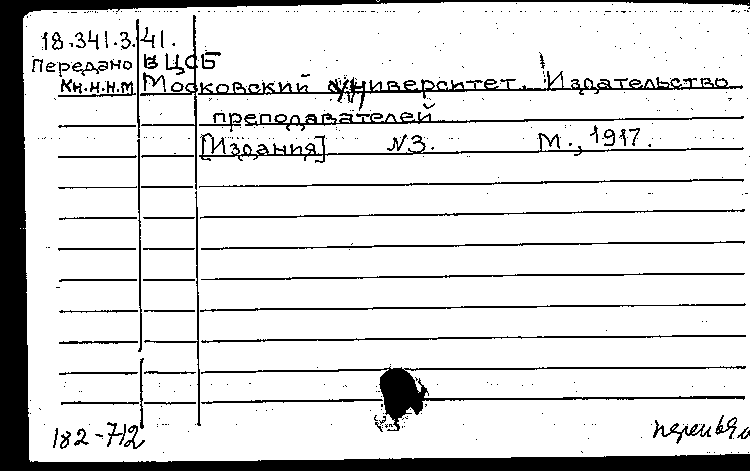 18.341.3.41.
Передано в ЦСБ
Кн.н.н.м Московский университет. Издательство
преподавателей
[Издания] №3. М., 1917.
182-712